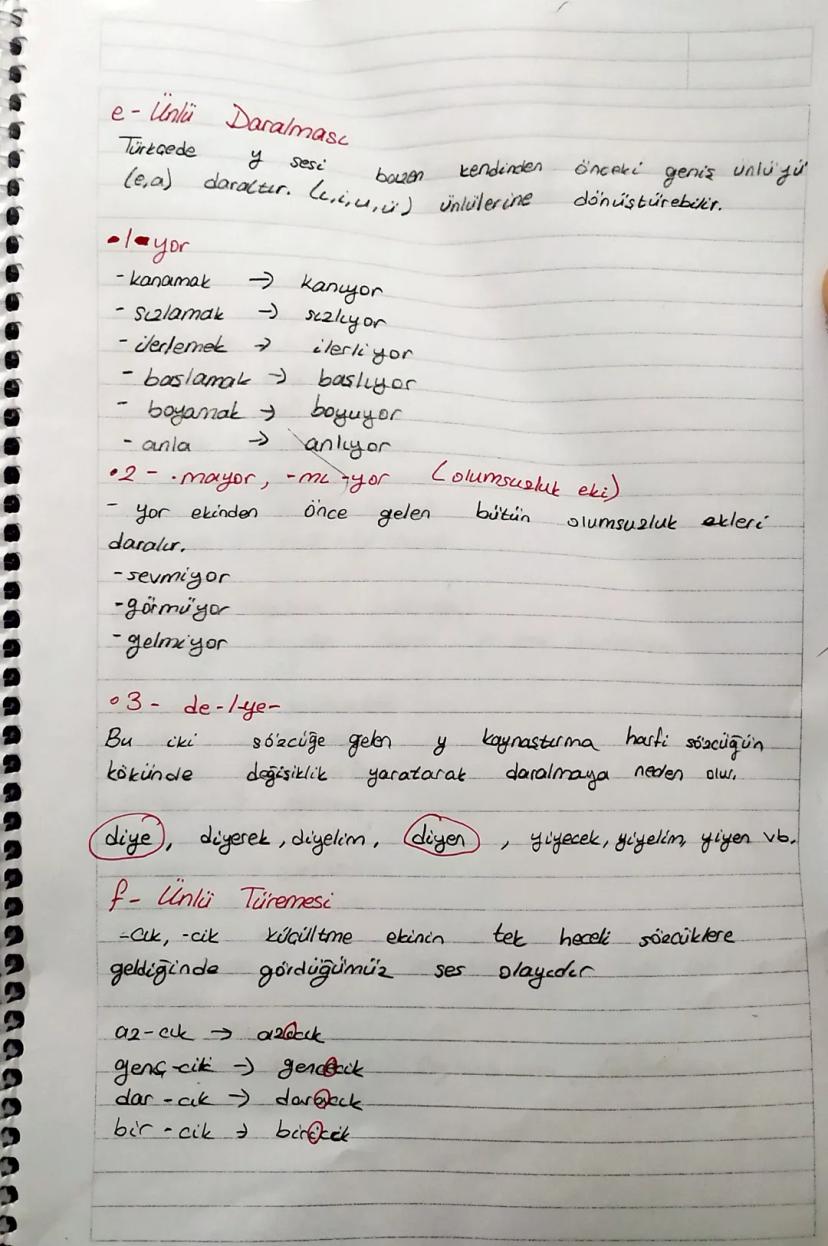 e- Ünlü Daralması
Türkçede y sesi bazen kendinden önceki geniş ünlüyü
(e,a) daraltır. (ı,i,u,ü) ünlülerine dönüştürebilir.
•1-yor
-kanamak → kanıyor
- sızlamak → sızlıyor
- ilerlemek → ilerliyor
- başlamak → başlıyor
- boyamak → boyuyor
- anla → anlıyor
•2 - -mayor, -mı -yor (olumsuzluk eki)
- yor ekinden önce gelen bütün olumsuzluk ekleri
daralır.
-sevmiyor
-görmüyor
-gelmiyor
•3- de-/-ye-
Bu iki sözcüğe gelen y kaynaştırma harfi sözcüğün
kökünde değişiklik yaratarak daralmaya neden olur.
diye, diyerek, diyelim, diyen, yiyecek, yiyelim, yiyen vb.
f- Ünlü Türemesi
-cık, -cik küçültme ekinin tek heceli sözcüklere
geldiğinde gördüğümüz ses olayıdır
az-cık → azıcık
genç-cik → gencecik
dar-cık → daracık
bir-cik → biricik